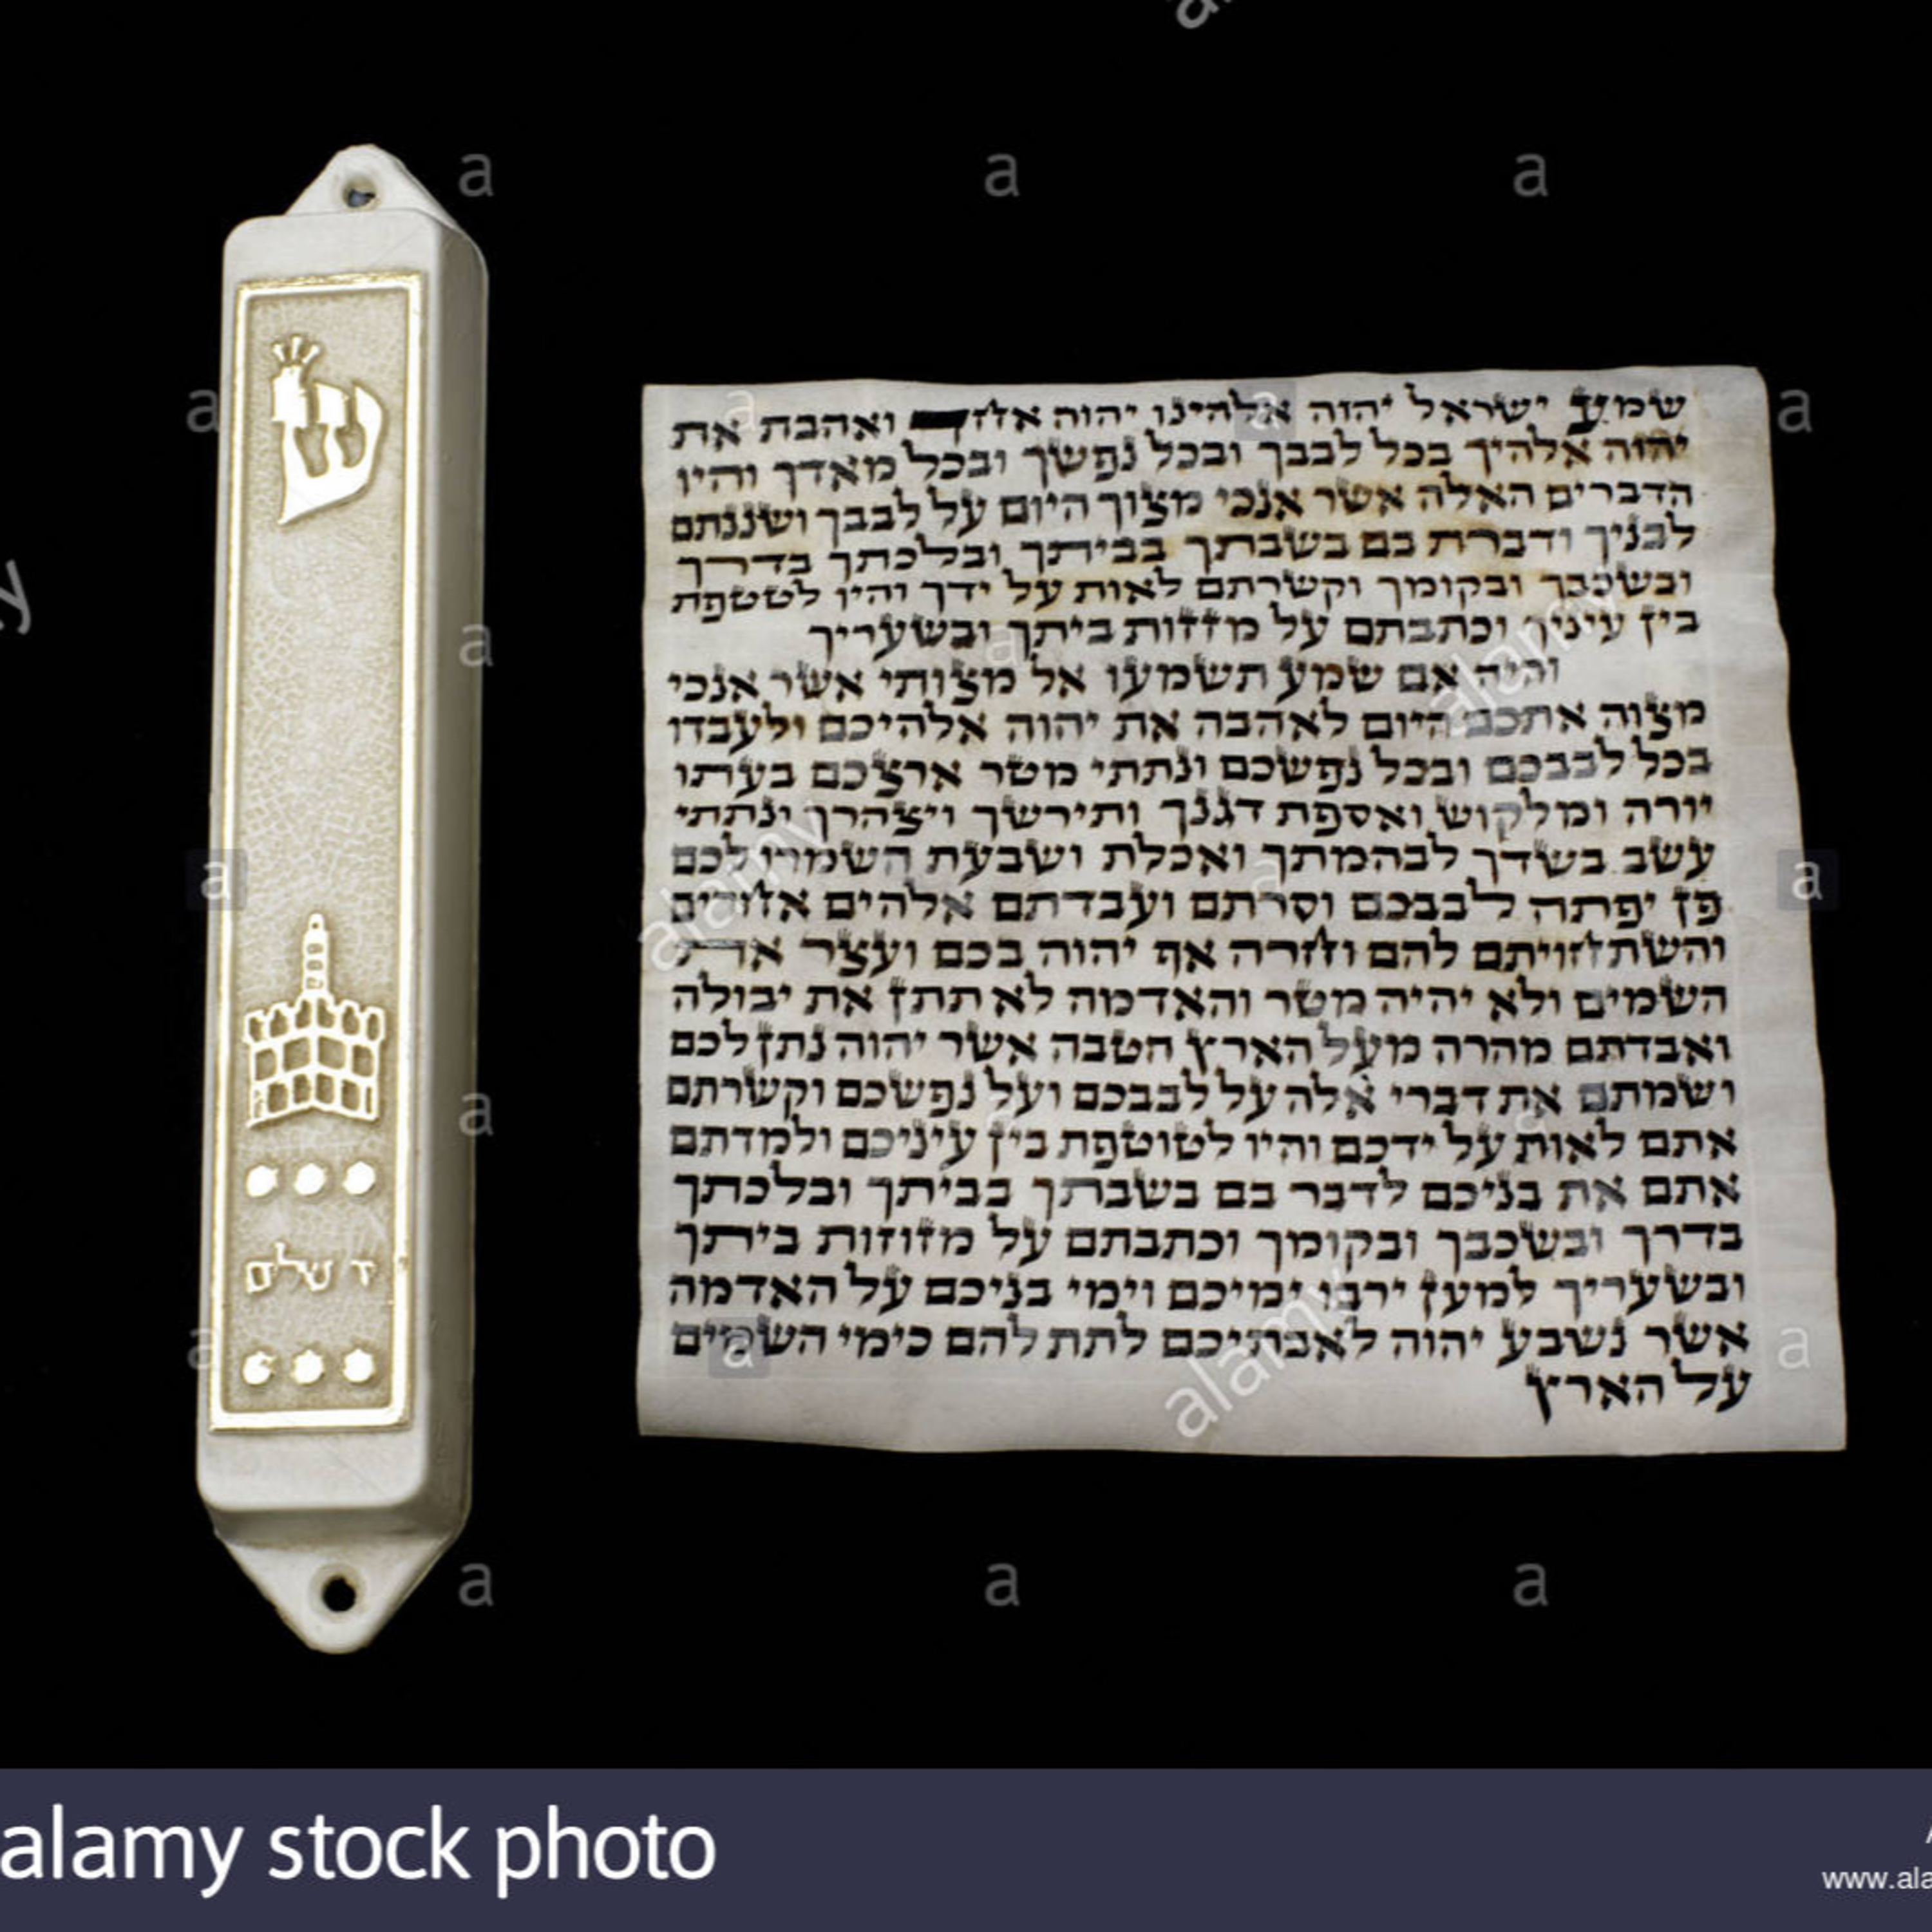 ש
שמע ישראל יהוה אלהינו יהוה אחד ואהבת את
יהוה אלהיך בכל לבבך ובכל נפשך ובכל מאדך והיו
הדברים האלה אשר אנכי מצוך היום על לבבך ושננתם
לבניך ודברת בם בשבתך בביתך ובלכתך בדרך
ובשכבך ובקומך וקשרתם לאות על ידך והיו לטטפת
בין עיניך וכתבתם על מזזות ביתך ובשעריך
והיה אם שמע תשמעו אל מצותי אשר אנכי
מצוה אתכם היום לאהבה את יהוה אלהיכם ולעבדו
בכל לבבכם ובכל נפשכם ונתתי מטר ארצכם בעתו
יורה ומלקוש ואספת דגנך ותירשך ויצהרך ונתתי
עשב בשדך לבהמתך ואכלת ושבעת השמרו לכם
פן יפתה לבבכם וסרתם ועבדתם אלהים אחרים
והשתחויתם להם וחרה אף יהוה בכם ועצר את
השמים ולא יהיה מטר והאדמה לא תתן את יבולה
ואבדתם מהרה מעל הארץ הטבה אשר יהוה נתן לכם
ושמתם את דברי אלה על לבבכם ועל נפשכם וקשרתם
אתם לאות על ידכם והיו לטוטפת בין עיניכם ולמדתם
אתם את בניכם לדבר בם בשבתך בביתך ובלכתך
בדרך ובשכבך ובקומך וכתבתם על מזוזות ביתך
ובשעריך למען ירבו ימיכם וימי בניכם על האדמה
אשר נשבע יהוה לאבתיכם לתת להם כימי השמים
על הארץ
alamy stock photo